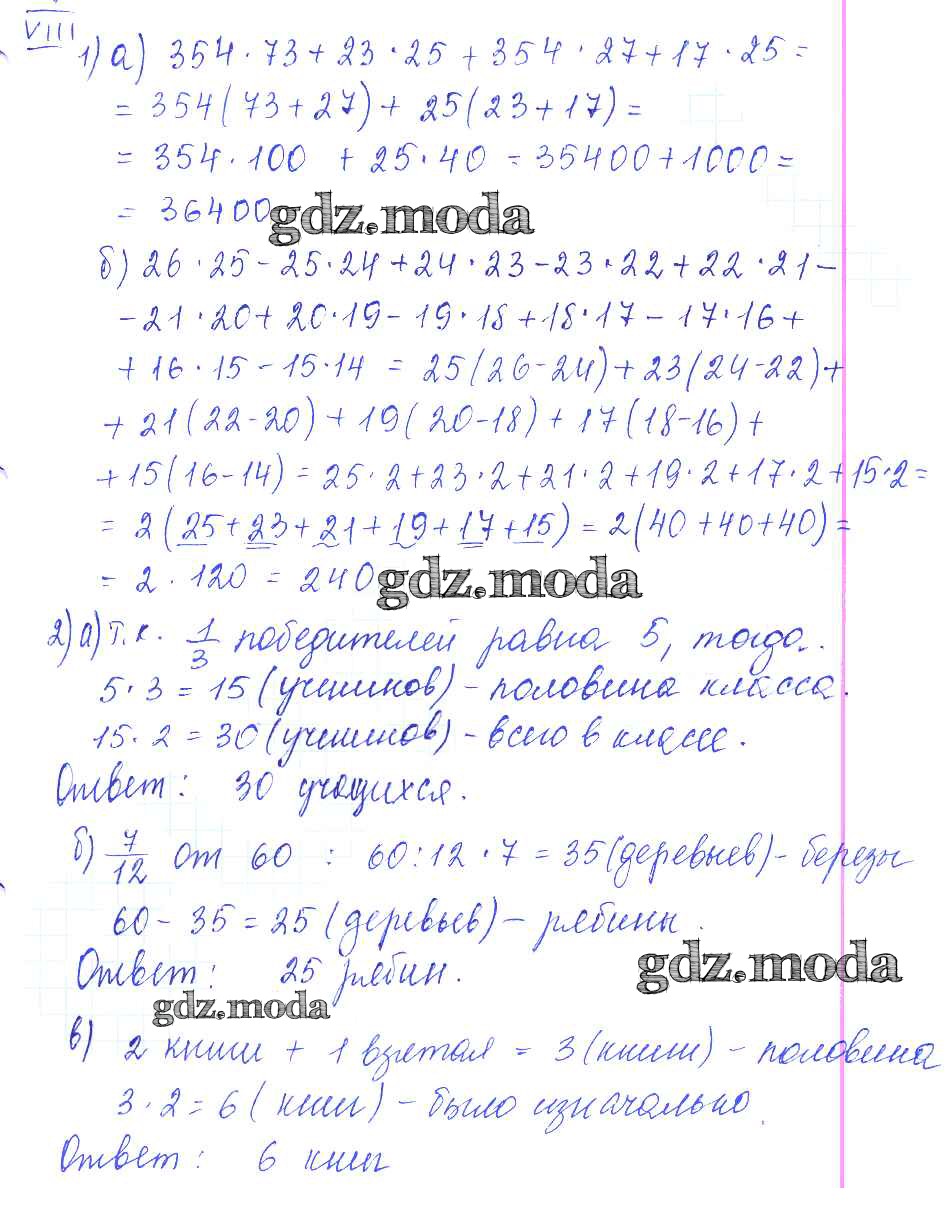 VIII
1) а) 354 · 73 + 23 · 25 + 354 · 27 + 17 · 25 =
= 354(73 + 27) + 25(23 + 17) =
= 354 · 100 + 25 · 40 = 35400 + 1000 =
= 36400
gdz.moda
б) 26 · 25 - 25 · 24 + 24 · 23 - 23 · 22 + 22 · 21 -
- 21 · 20 + 20 · 19 - 19 · 18 + 18 · 17 - 17 · 16 +
+ 16 · 15 - 15 · 14 = 25(26 - 24) + 23(24 - 22) +
+ 21(22 - 20) + 19(20 - 18) + 17(18 - 16) +
+ 15(16 - 14) = 25 · 2 + 23 · 2 + 21 · 2 + 19 · 2 + 17 · 2 + 15 · 2 =
= 2(25 + 23 + 21 + 19 + 17 + 15) = 2(40 + 40 + 40) =
= 2 · 120 = 240
gdz.moda
2) а) т.к. 1/3 победителей равна 5, тогда.
5 · 3 = 15 (учеников) - половина класса.
15 · 2 = 30 (учеников) - всего в классе.
Ответ: 30 учащихся.
б) 7/12 от 60 : 60 : 12 · 7 = 35 (деревьев) - березы
60 - 35 = 25 (деревьев) - рябины.
Ответ: 25 рябин.
gdz.moda
gdz.moda
в) 2 книги + 1 взятая = 3 (книги) - половина
3 · 2 = 6 (книг) - было изначально.
Ответ: 6 книг